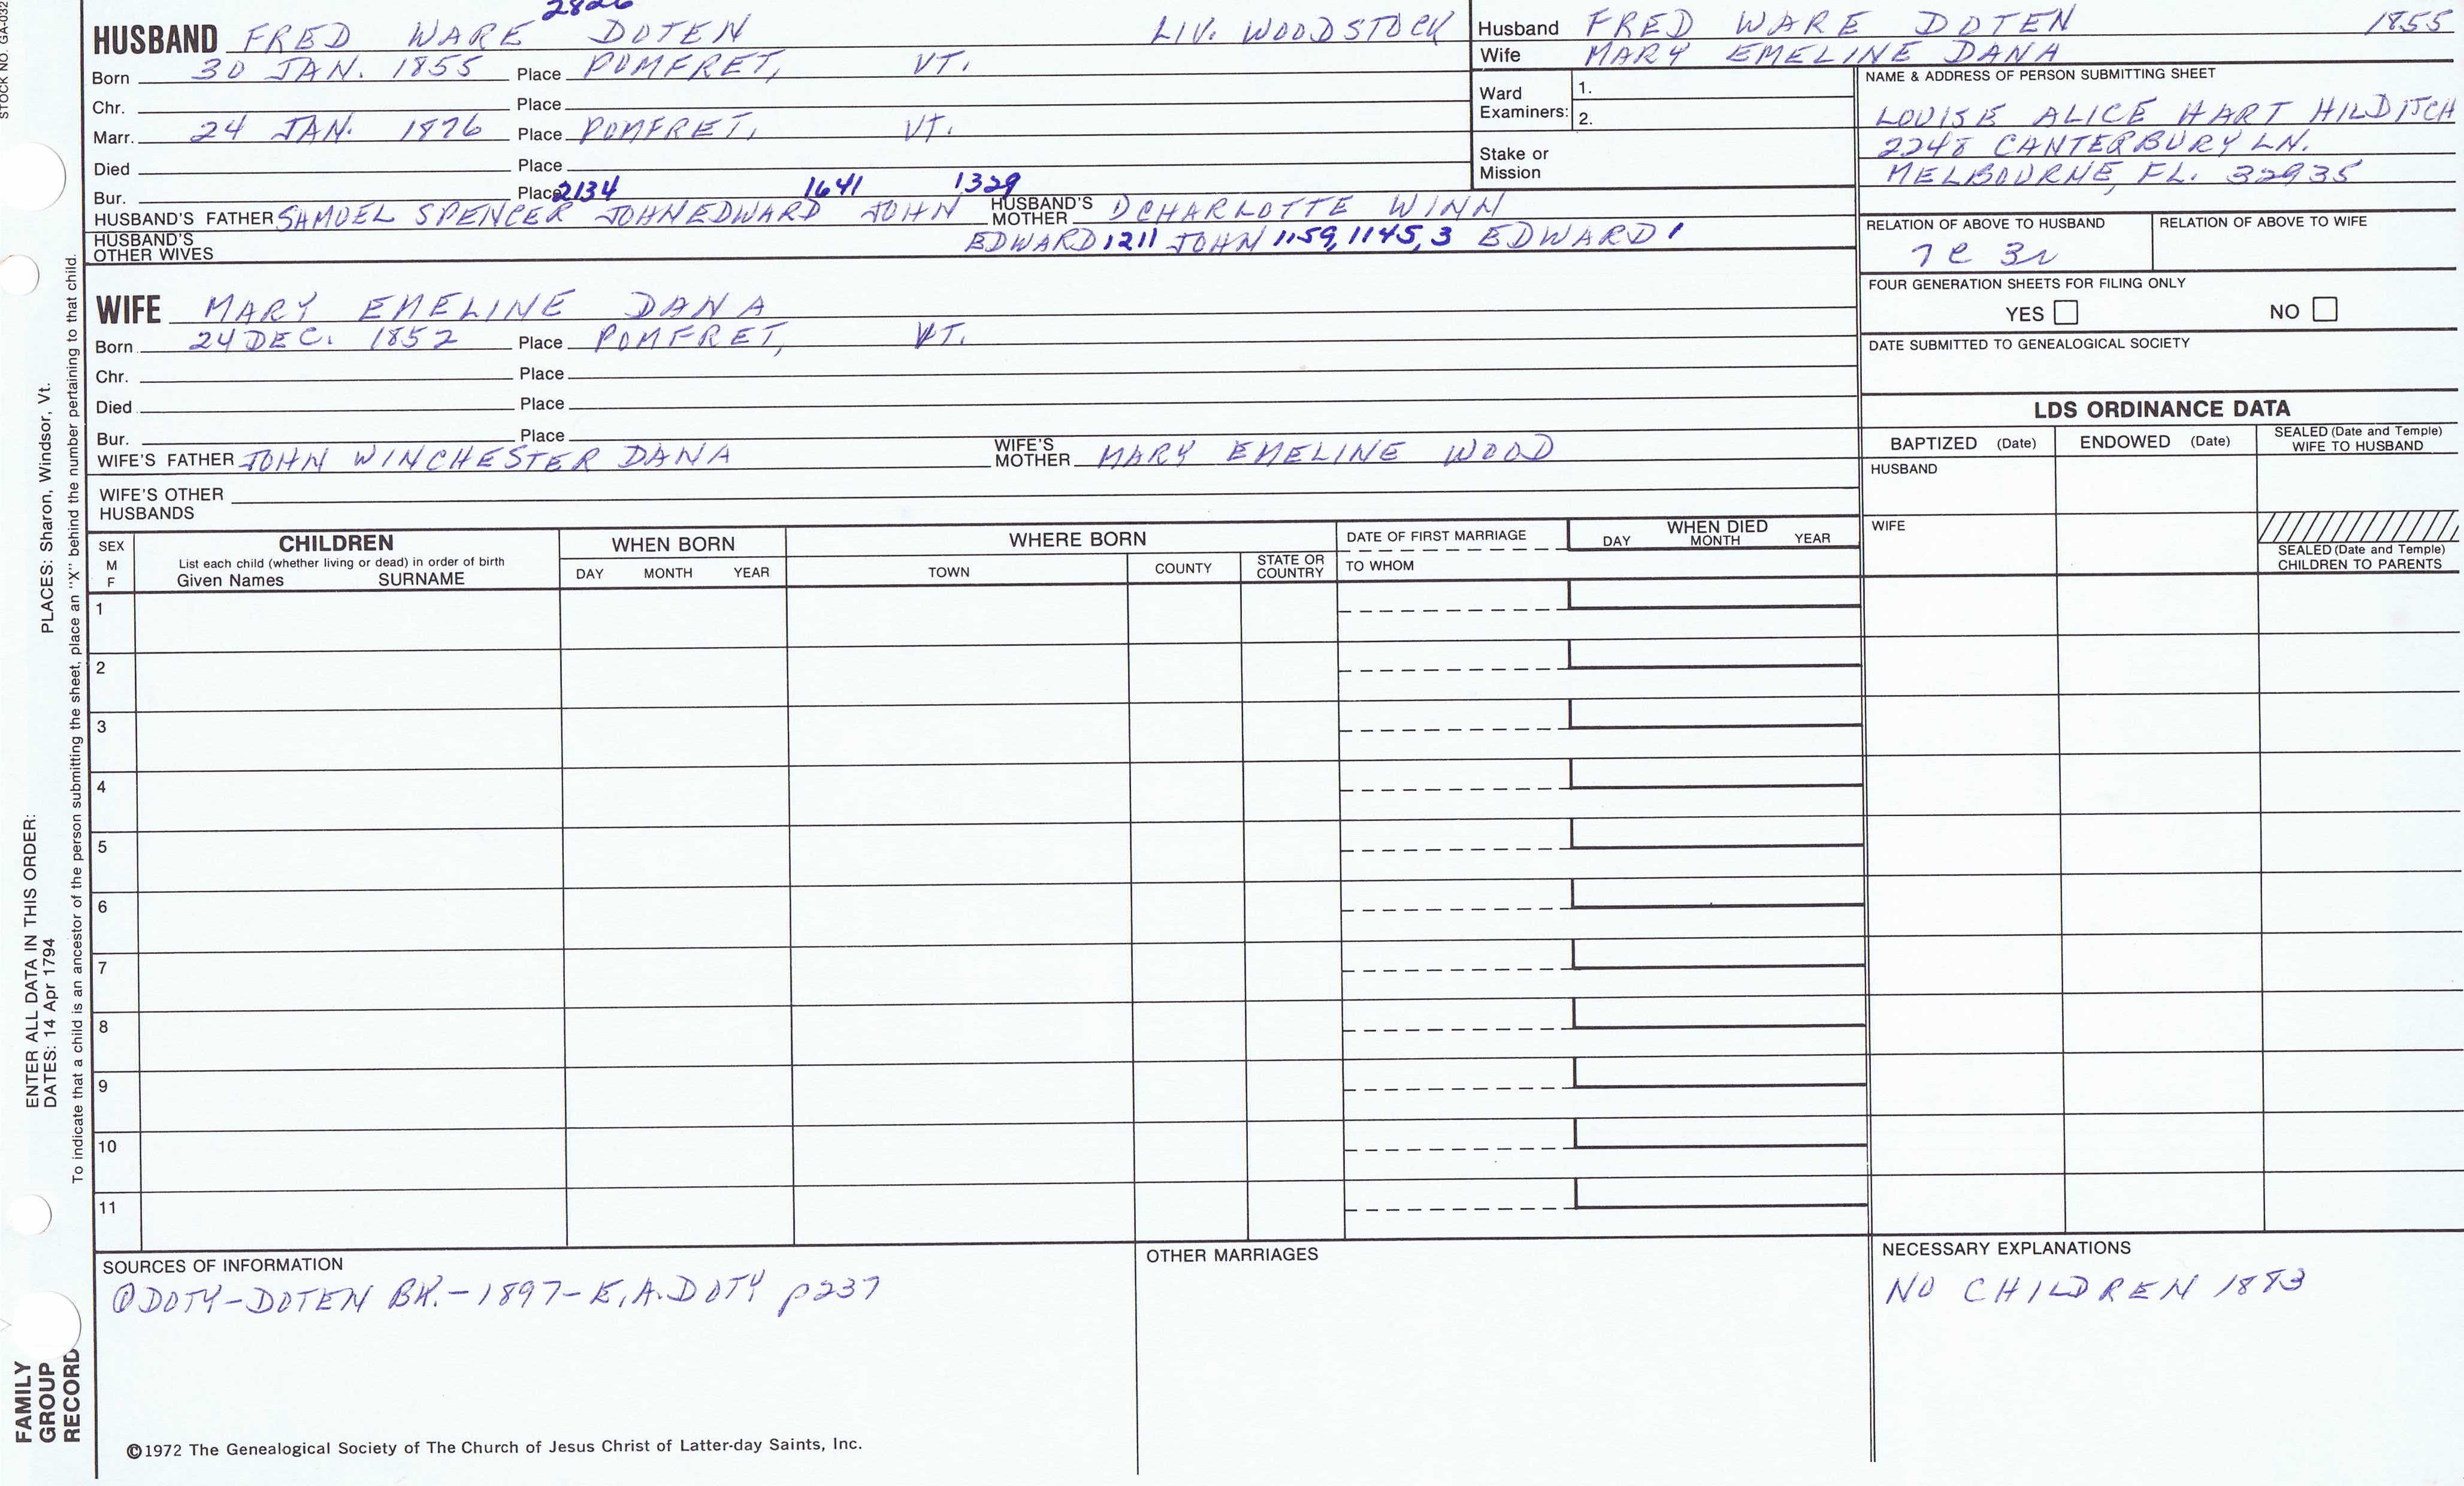 STOCK NO. GA-032
2826
HUSBAND FRED WARE DOTEN LIV. WOODSTOCK
Born 30 JAN. 1855 Place POMFRET, VT.
Chr. Place
Marr. 24 JAN. 1876 Place POMFRET, VT.
Died Place
Bur. Place 2134 1641 1329
HUSBAND'S FATHER SAMUEL SPENCER JOHN EDWARD JOHN HUSBAND'S MOTHER CHARLOTTE WINN
HUSBAND'S OTHER WIVES EDWARD 1211 JOHN 1159, 1145, 3 EDWARD 1
Husband FRED WARE DOTEN 1855
Wife MARY EMELINE DANA
Ward Examiners: 1.
2.
Stake or Mission
NAME & ADDRESS OF PERSON SUBMITTING SHEET
LOUISE ALICE HART HILDITCH
2248 CANTERBURY LN.
MELBOURNE, FL. 32935
RELATION OF ABOVE TO HUSBAND RELATION OF ABOVE TO WIFE
7 C 3r
FOUR GENERATION SHEETS FOR FILING ONLY
YES NO
DATE SUBMITTED TO GENEALOGICAL SOCIETY
WIFE MARY EMELINE DANA
Born 24 DEC. 1852 Place POMFRET, VT.
Chr. Place
Died Place
Bur. Place
WIFE'S FATHER JOHN WINCHESTER DANA WIFE'S MOTHER MARY EMELINE WOOD
WIFE'S OTHER HUSBANDS
LDS ORDINANCE DATA
BAPTIZED (Date) ENDOWED (Date) SEALED (Date and Temple) WIFE TO HUSBAND
HUSBAND
WIFE
SEALED (Date and Temple) CHILDREN TO PARENTS
SEX M F
CHILDREN
List each child (whether living or dead) in order of birth
Given Names SURNAME
WHEN BORN
DAY MONTH YEAR
WHERE BORN
TOWN COUNTY STATE OR COUNTRY
DATE OF FIRST MARRIAGE
TO WHOM
WHEN DIED
DAY MONTH YEAR
1
2
3
4
5
6
7
8
9
10
11
SOURCES OF INFORMATION
① DOTY-DOTEN BK.-1897-E.A.DOTY p237
OTHER MARRIAGES
NECESSARY EXPLANATIONS
NO CHILDREN 1883
©1972 The Genealogical Society of The Church of Jesus Christ of Latter-day Saints, Inc.
FAMILY GROUP RECORD
ENTER ALL DATA IN THIS ORDER: PLACES: Sharon, Windsor, Vt.
DATES: 14 Apr 1794
To indicate that a child is an ancestor of the person submitting the sheet, place an "X" behind the number pertaining to that child.